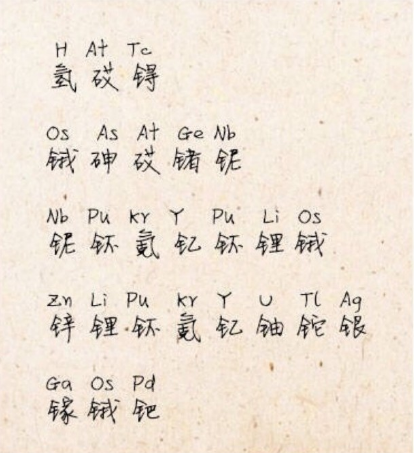 H At Tc
氢 砹 锝
Os As At Ge Nb
锇 砷 砹 锗 铌
Nb Pu Kr Y Pu Li Os
铌 钚 氪 钇 钚 锂 锇
Zn Li Pu Kr Y U Tl Ag
锌 锂 钚 氪 钇 铀 铊 银
Ga Os Pd
镓 锇 钯